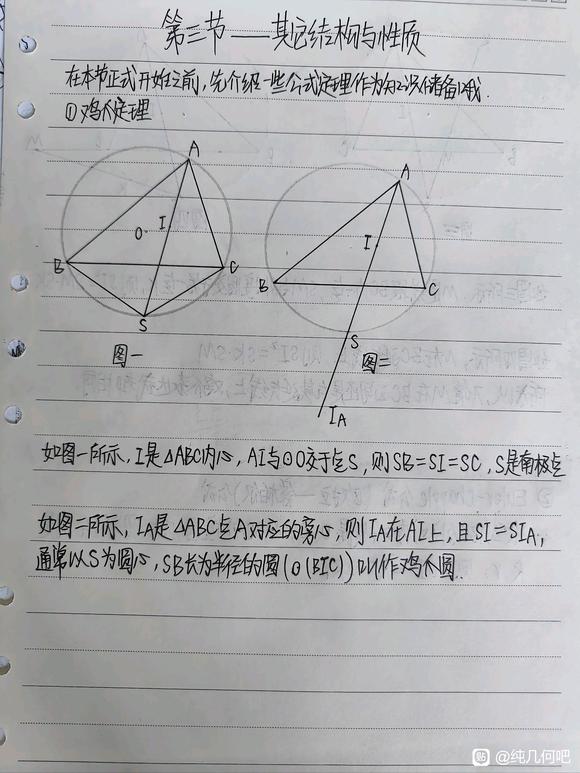 第三节——其它结构与性质
在本节正式开始之前,先介绍一些公式定理作为知识储备哦.
①鸡爪定理
A
I
O
B
C
S
图一
A
I
B
C
S
I_A
图二
如图一所示,I是△ABC内心,AI与⊙O交于点S,则SB=SI=SC,S是南极点
如图二所示,I_A是△ABC点A对应的旁心,则I_A在AI上,且SI=SI_A,
通常以S为圆心,SB长为半径的圆(⊙(BIC))叫作鸡爪圆.
贴 @纯几何吧